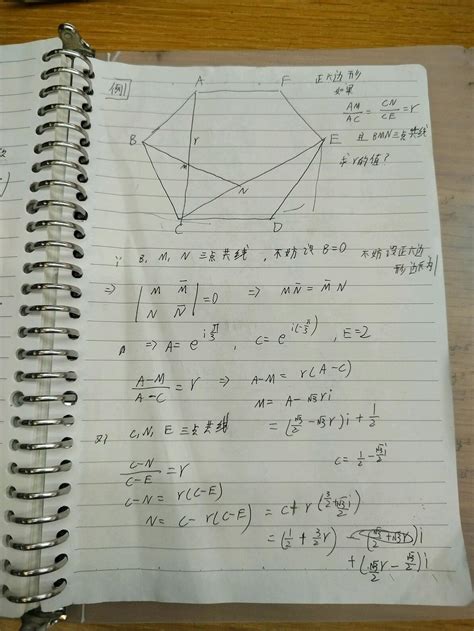 例1
A F
B E
r
M
N
C D
正六边形
如果
AM/AC = CN/CE = r
且 BMN三点共线
求r的值?
∵ B, M, N 三点共线, 不妨设 B=0 不妨设正六边形边长为1
⇒ |M M̄; N N̄| = 0 ⇒ MN̄ = M̄N
⇒ A = e^{iπ/3}, C = e^{i(-π/3)}, E=2
(A-M)/(A-C) = r ⇒ A-M = r(A-C)
M = A - √3ri
= (√3/2 - √3r)i + 1/2
又∵ C, N, E 三点共线
C = 1/2 - √3/2 i
(C-N)/(C-E) = r
C-N = r(C-E)
N = C - r(C-E) = C + r(3/2 + √3/2 i)
= (1/2 + 3/2 r)
+ (√3/2 r - √3/2)i